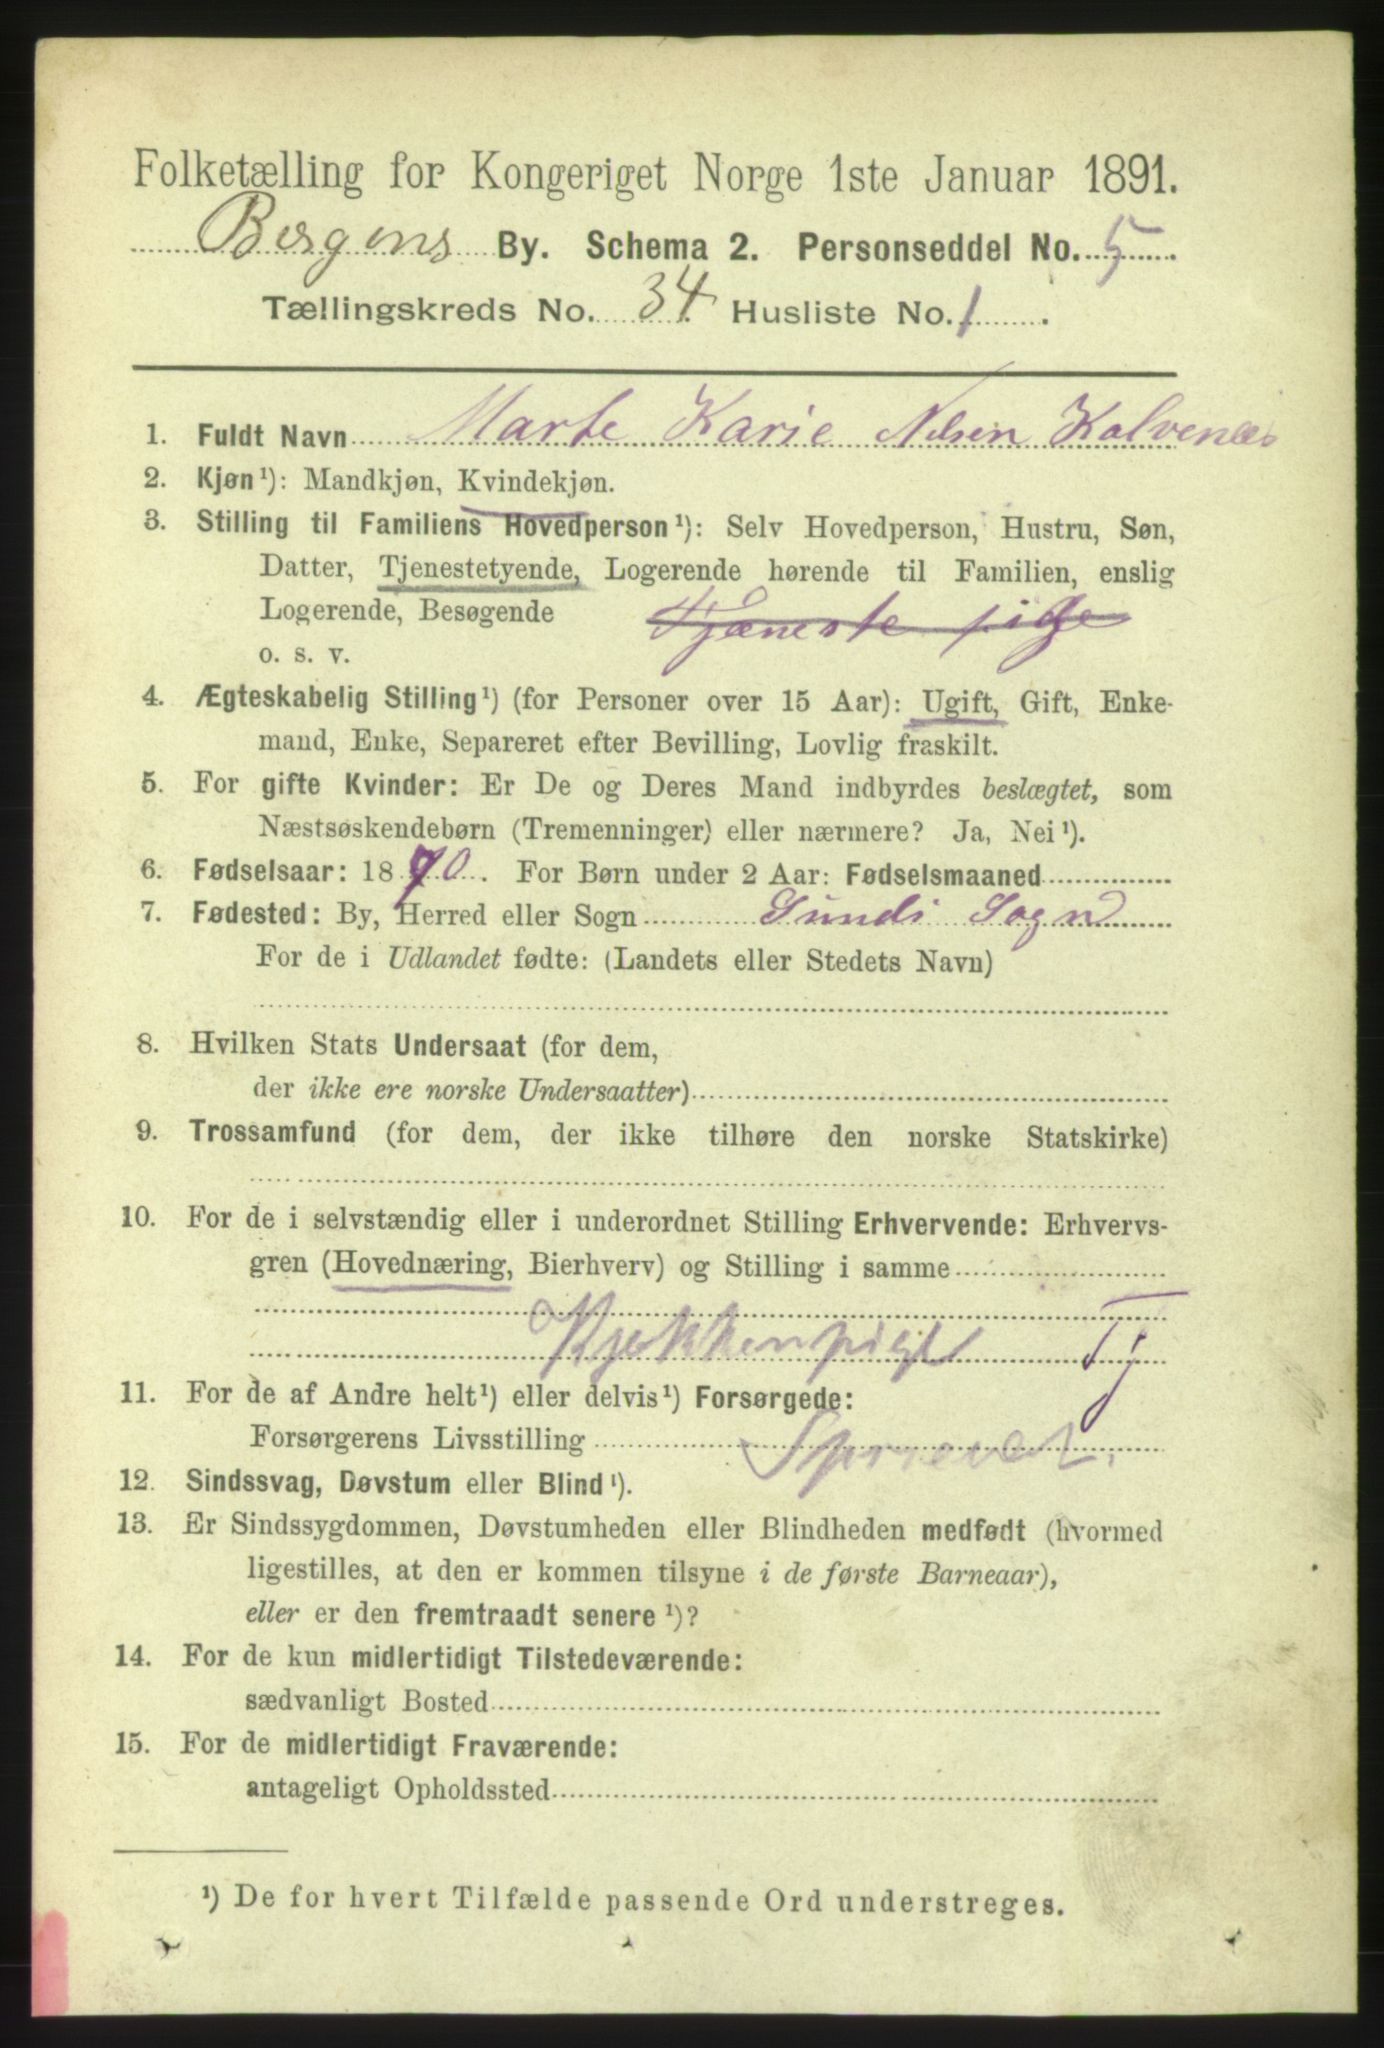 Folketælling for Kongeriget Norge 1ste Januar 1891.
Bergens By. Schema 2. Personseddel No. 5.
Tællingskreds No. 34 Husliste No. 1.
1. Fuldt Navn Marte Karie Nilsen Kolvenæs
2. Kjøn¹): Mandkjøn, Kvindekjøn.
3. Stilling til Familiens Hovedperson¹): Selv Hovedperson, Hustru, Søn,
Datter, Tjenestetyende, Logerende hørende til Familien, enslig
Logerende, Besøgende Tjæneste pige
o. s. v.
4. Ægteskabelig Stilling¹) (for Personer over 15 Aar): Ugift, Gift, Enke-
mand, Enke, Separeret efter Bevilling, Lovlig fraskilt.
5. For gifte Kvinder: Er De og Deres Mand indbyrdes beslægtet, som
Næstsøskendebørn (Tremenninger) eller nærmere? Ja, Nei¹).
6. Fødselsaar: 1870. For Børn under 2 Aar: Fødselsmaaned
7. Fødested: By, Herred eller Sogn Sunds Sogn
For de i Udlandet fødte: (Landets eller Stedets Navn)
8. Hvilken Stats Undersaat (for dem,
der ikke ere norske Undersaatter)
9. Trossamfund (for dem, der ikke tilhøre den norske Statskirke)
10. For de i selvstændig eller i underordnet Stilling Erhvervende: Erhvervs-
gren (Hovednæring, Bierhverv) og Stilling i samme
Kjøkkenpige Tj
11. For de af Andre helt¹) eller delvis¹) Forsørgede:
Forsørgerens Livsstilling
12. Sindssvag, Døvstum eller Blind¹).
13. Er Sindssygdommen, Døvstumheden eller Blindheden medfødt (hvormed
ligestilles, at den er kommen tilsyne i de første Barneaar),
eller er den fremtraadt senere¹)?
14. For de kun midlertidigt Tilstedeværende:
sædvanligt Bosted
15. For de midlertidigt Fraværende:
antageligt Opholdssted
¹) De for hvert Tilfælde passende Ord understreges.